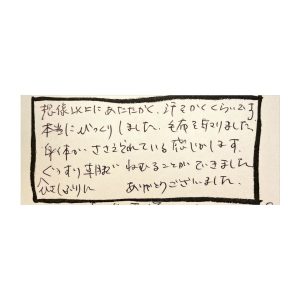 想像以上にあたたかく、汗をかくくらいです
本当にびっくりしました。毛布を
身体がささえられている感じがします。
ぐっすり朝までねむることができました
ひさしぶりに ありがとうございました。